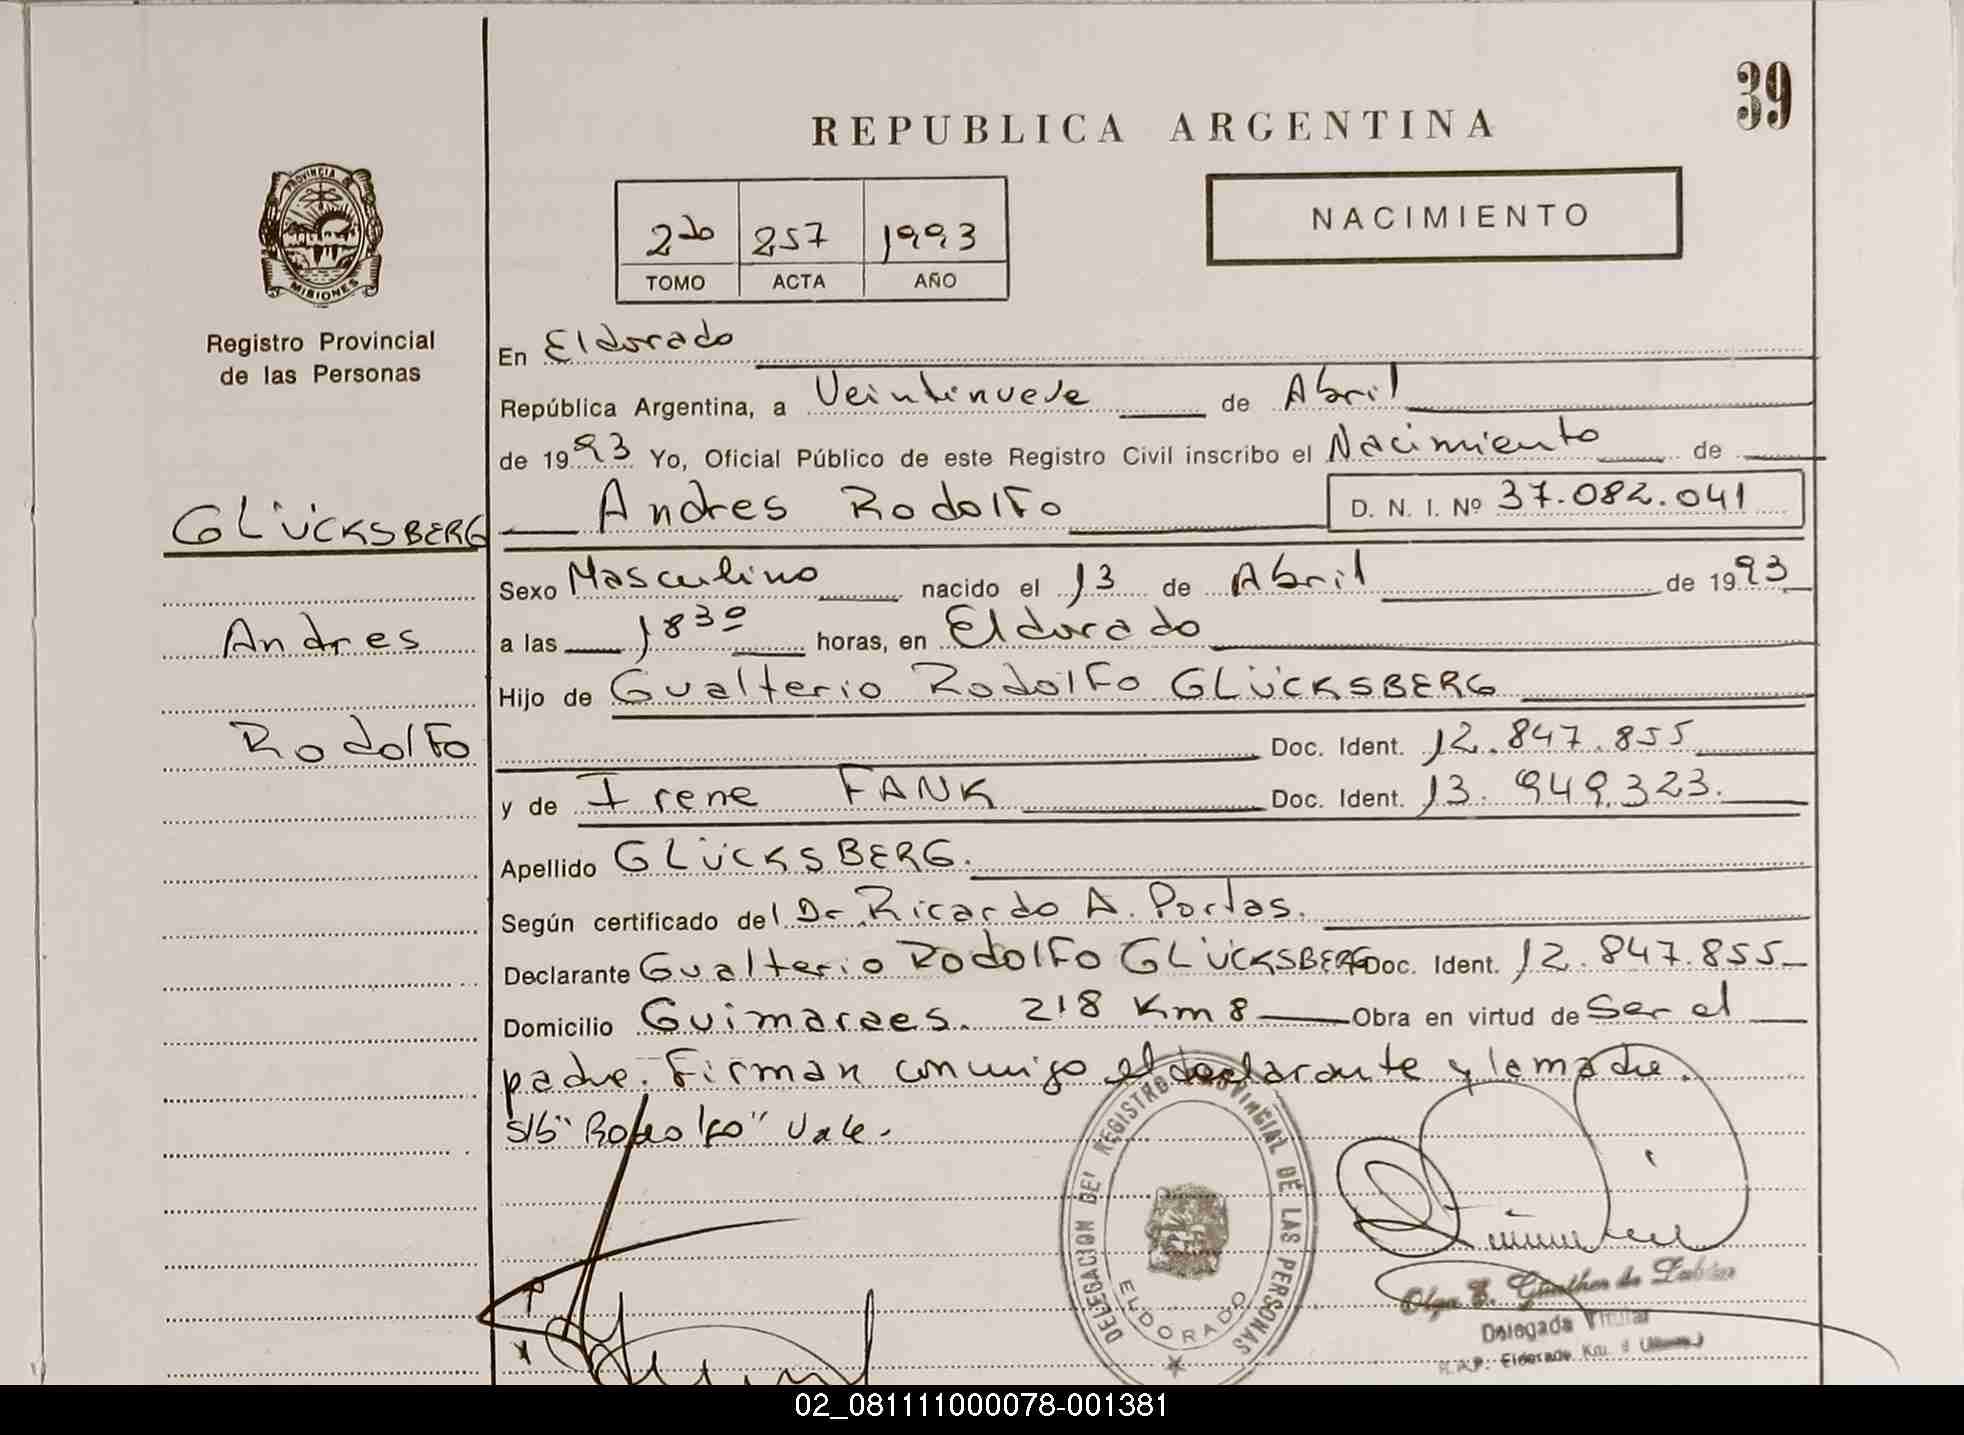 39
REPUBLICA ARGENTINA
PROVINCIA
MISIONES
2do 257 1993
TOMO ACTA AÑO
NACIMIENTO
Registro Provincial
de las Personas
En Eldorado
República Argentina, a Veintinueve de Abril
de 1993 Yo, Oficial Público de este Registro Civil inscribo el Nacimiento de
GLÜCKSBERG
Andres Rodolfo D. N. I. Nº 37.082.041
Sexo Masculino nacido el 13 de Abril de 1993
Andres
a las 1830 horas, en Eldorado
Hijo de Gualterio Rodolfo GLÜCKSBERG
Rodolfo
Doc. Ident. 12.847.855
y de Irene FANK Doc. Ident. 13.949.323.
Apellido GLÜCKSBERG.
Según certificado del Dr. Ricardo A. Portas.
Declarante Gualterio Rodolfo GLÜCKSBERG Doc. Ident. 12.847.855
Domicilio Guimaraes. 218 Km 8 Obra en virtud de ser el
padre. Firman conmigo el declarante y la madre.
s/b "Rodolfo" Vale.
DELEGACION DEL REGISTRO PROVINCIAL DE LAS PERSONAS
ELDORADO
Olga E. Günther de
Delegada Titular
R.A.P. Eldorado Km.
02_081111000078-001381